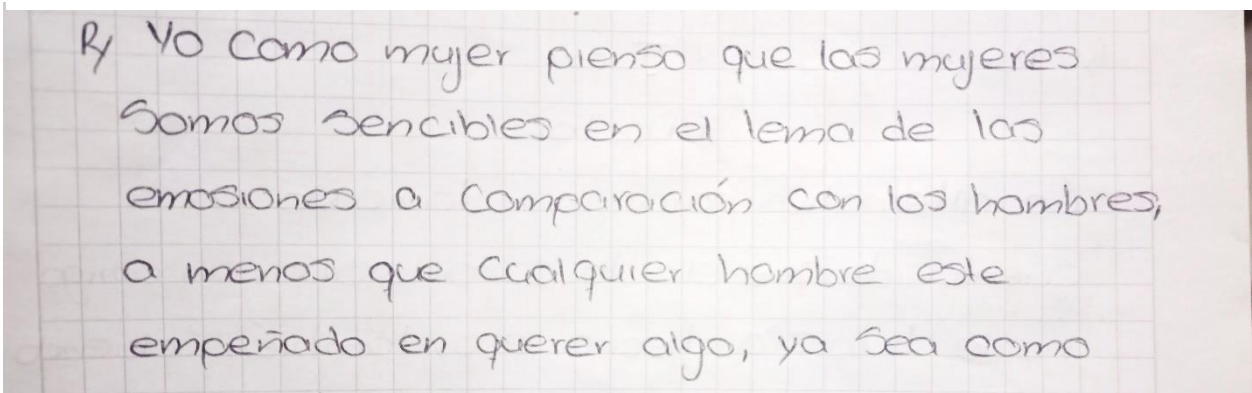 R/ Yo como mujer pienso que las mujeres
somos sencibles en el tema de las
emosiones a comparación con los hombres,
a menos que cualquier hombre este
empeñado en querer algo, ya sea como